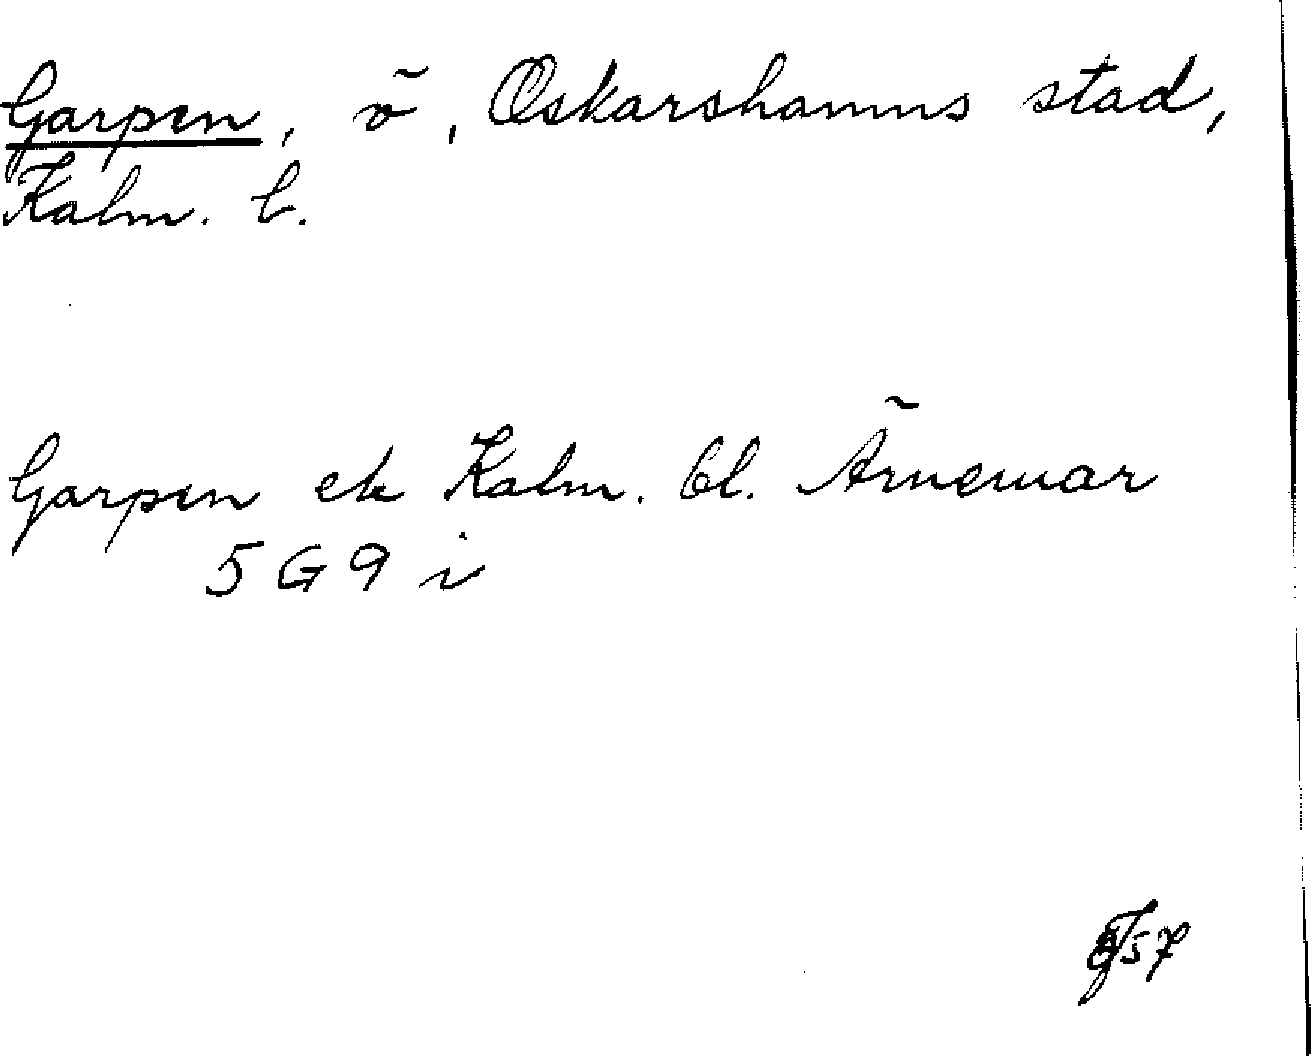 Garpen, ö, Oskarshamns stad,
Kalm. l.
Garpen ek Kalm. bl. Ärnemar
5 G 9 i
57